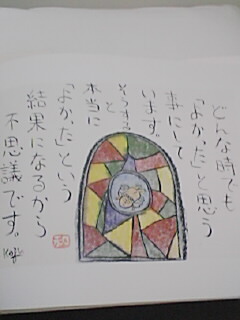 どんな時でも
「よかった」と思う
事にして
います。
そうする
と
本当に
「よかった」という
結果になるから
不思議です。